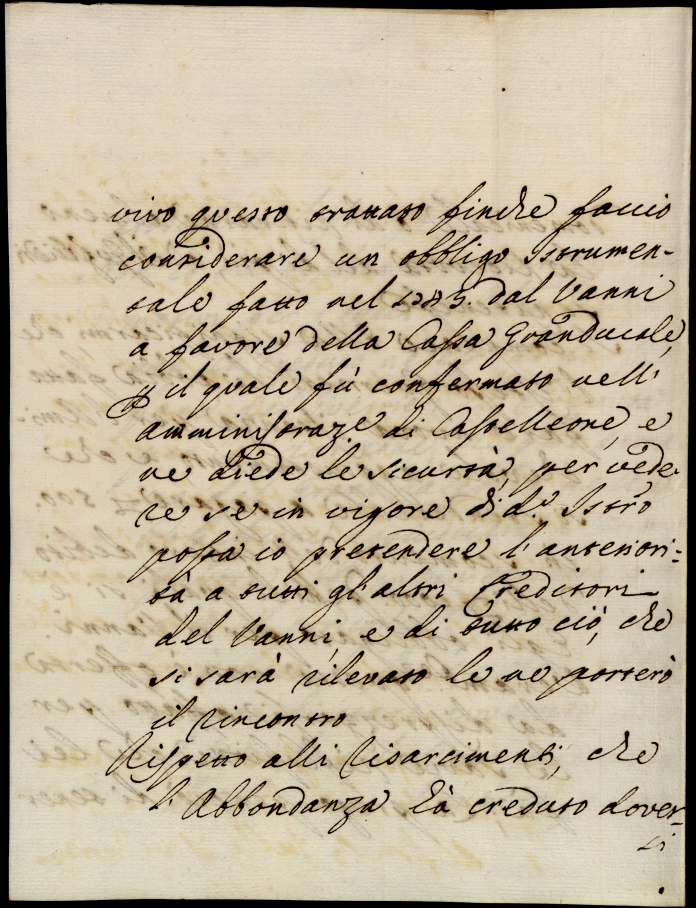 vivo questo trattato finche faccio
considerare un obbligo Istrumen-
tale fatto nel 1745. dal Vanni
a favore della Cassa Granducale,
p il quale fù confermato nell'
amministraz.e di Castelleone, e
ne diede le sicurtà, per vede-
re se in vigore di d.o Istro
possa io pretendere l'anteriori-
tà a tutti gl'altri Creditori
del Vanni, e di tutto ciò, che
si sarà rilevato le ne porterò
il rincontro
Rispetto alli Risarcimenti, che
l'Abbondanza hà creduto dover-
li